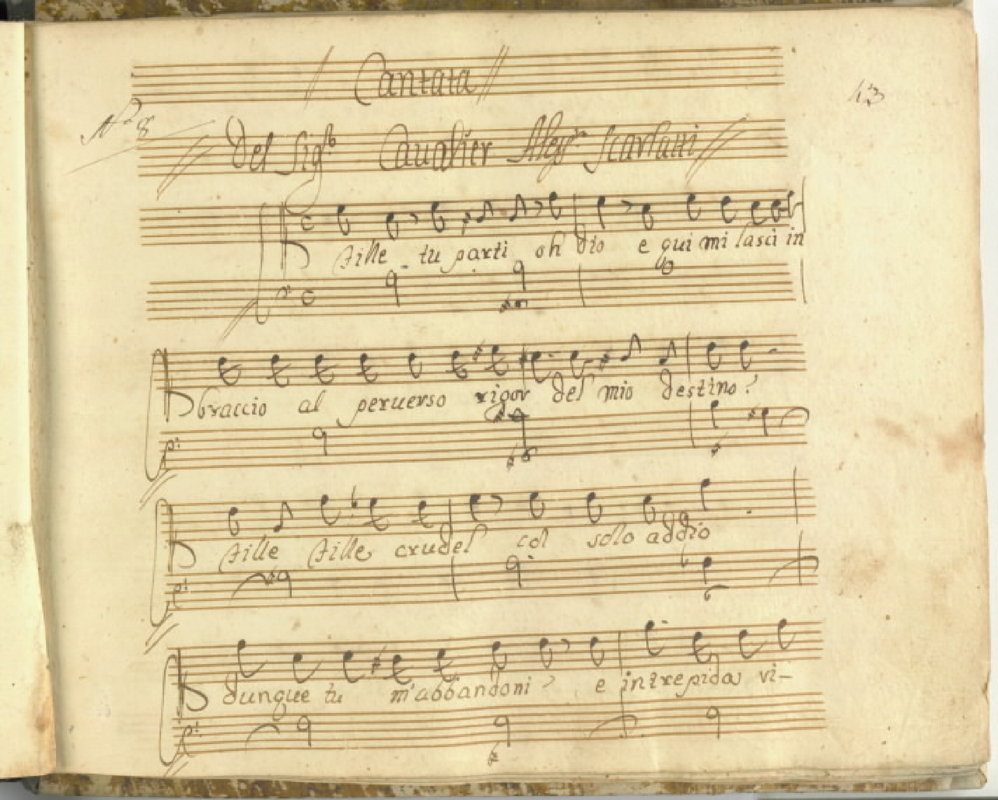 Cantata
43
N.º 8
Del Sig.r Caualier Aless.o Scarlatti
Fille tu parti oh Dio e qui mi lasci in
braccio al peruerso rigor del mio destino?
Fille Fille crudel col solo addio
dunque tu m'abbandoni? e intrepida vi-